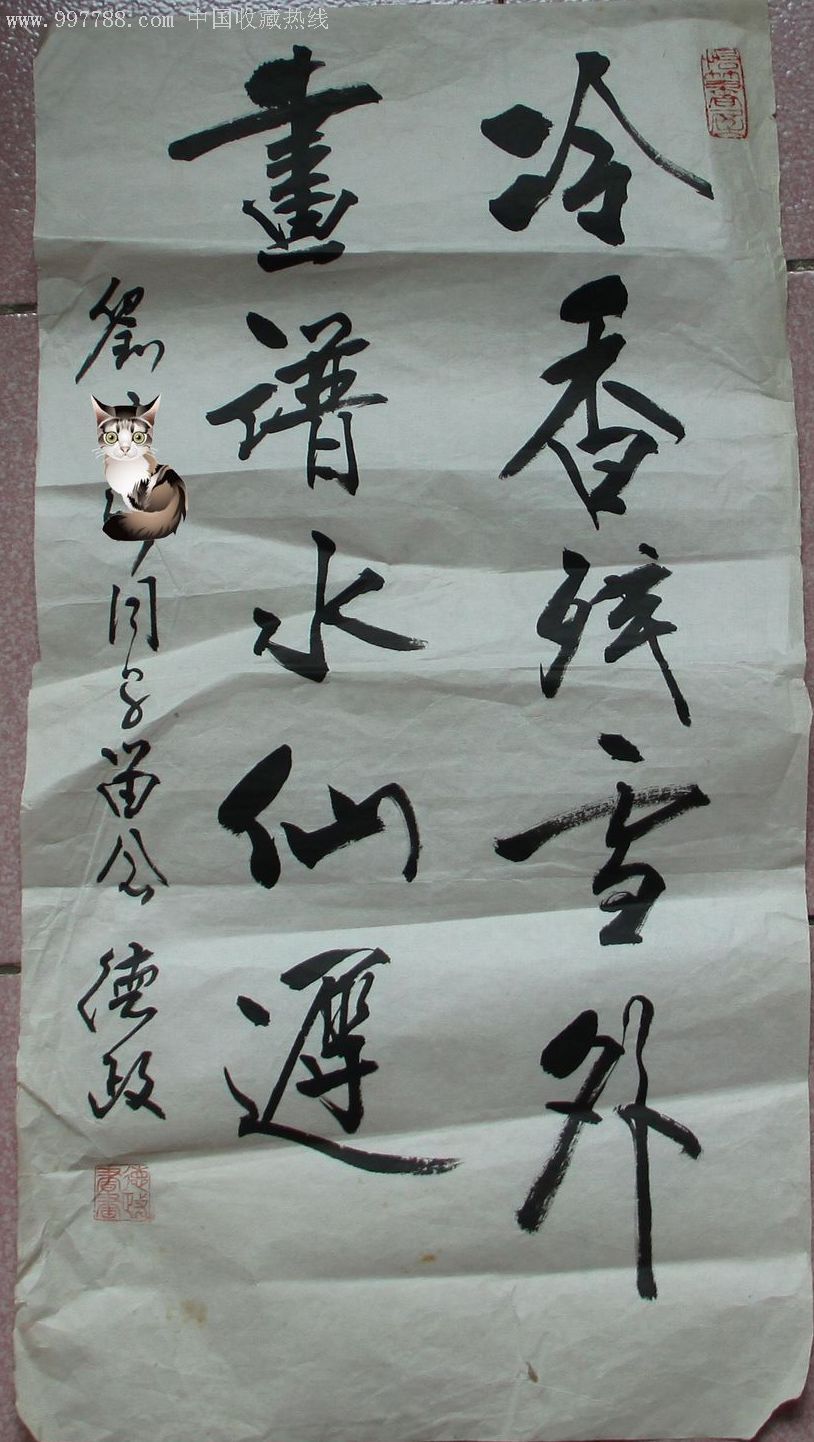 www.997788.com 中国收藏热线
冷香残雪外
畫谱水仙遲
劉
同学留念 德政
德政書畫